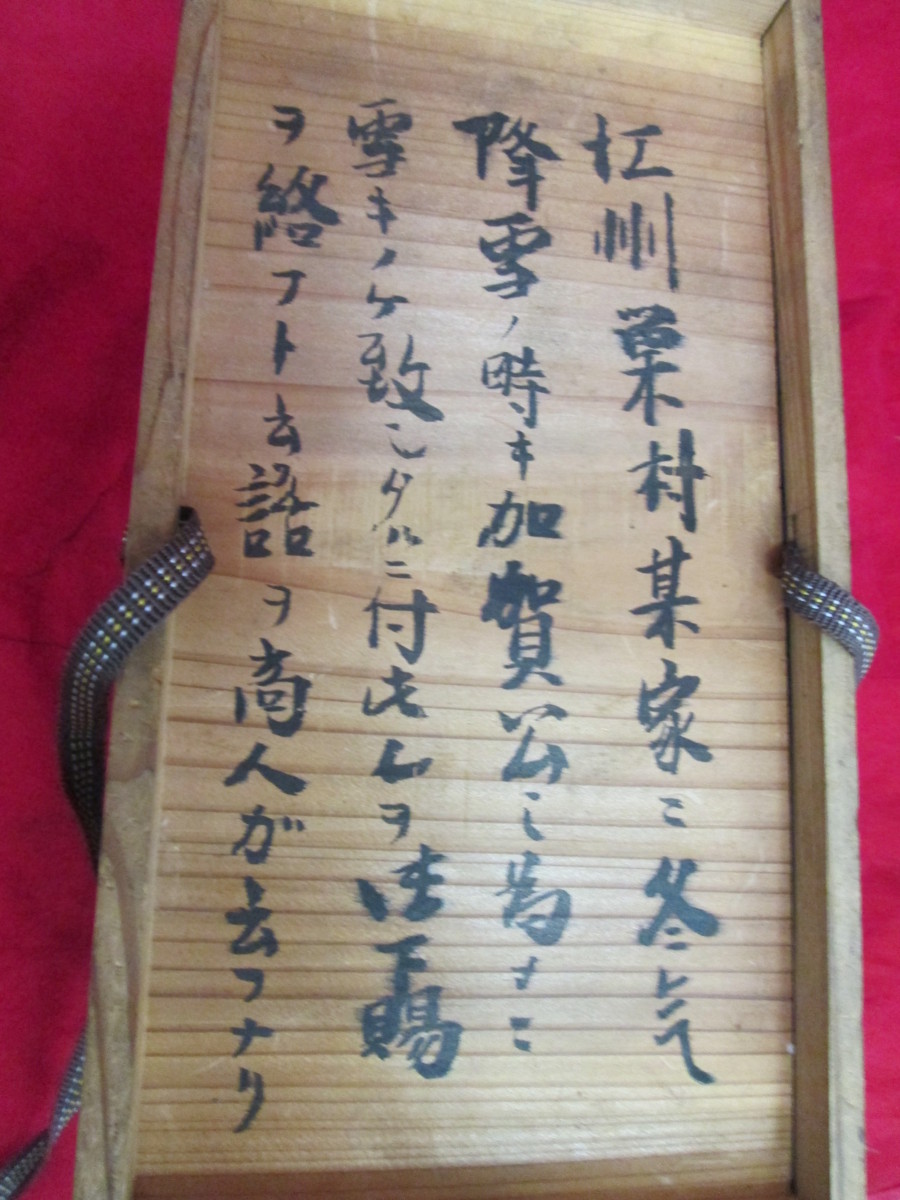 江州栗村某家ニ冬ニして
降雪ノ時キ加賀公之為メニ
雪キノケ致シタルニ付此レヲ御下賜
ヲ給フト云語ヲ商人ガ云フナリ